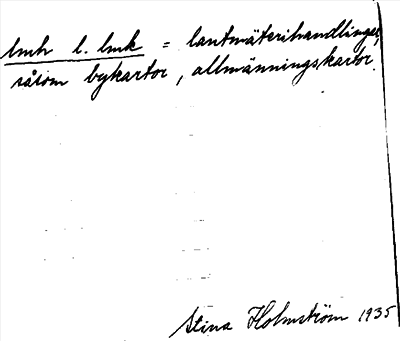 lmh l. lmk = lantmäterihandlingar,
såsom bykartor, allmänningskartor.
Stina Holmström 1935